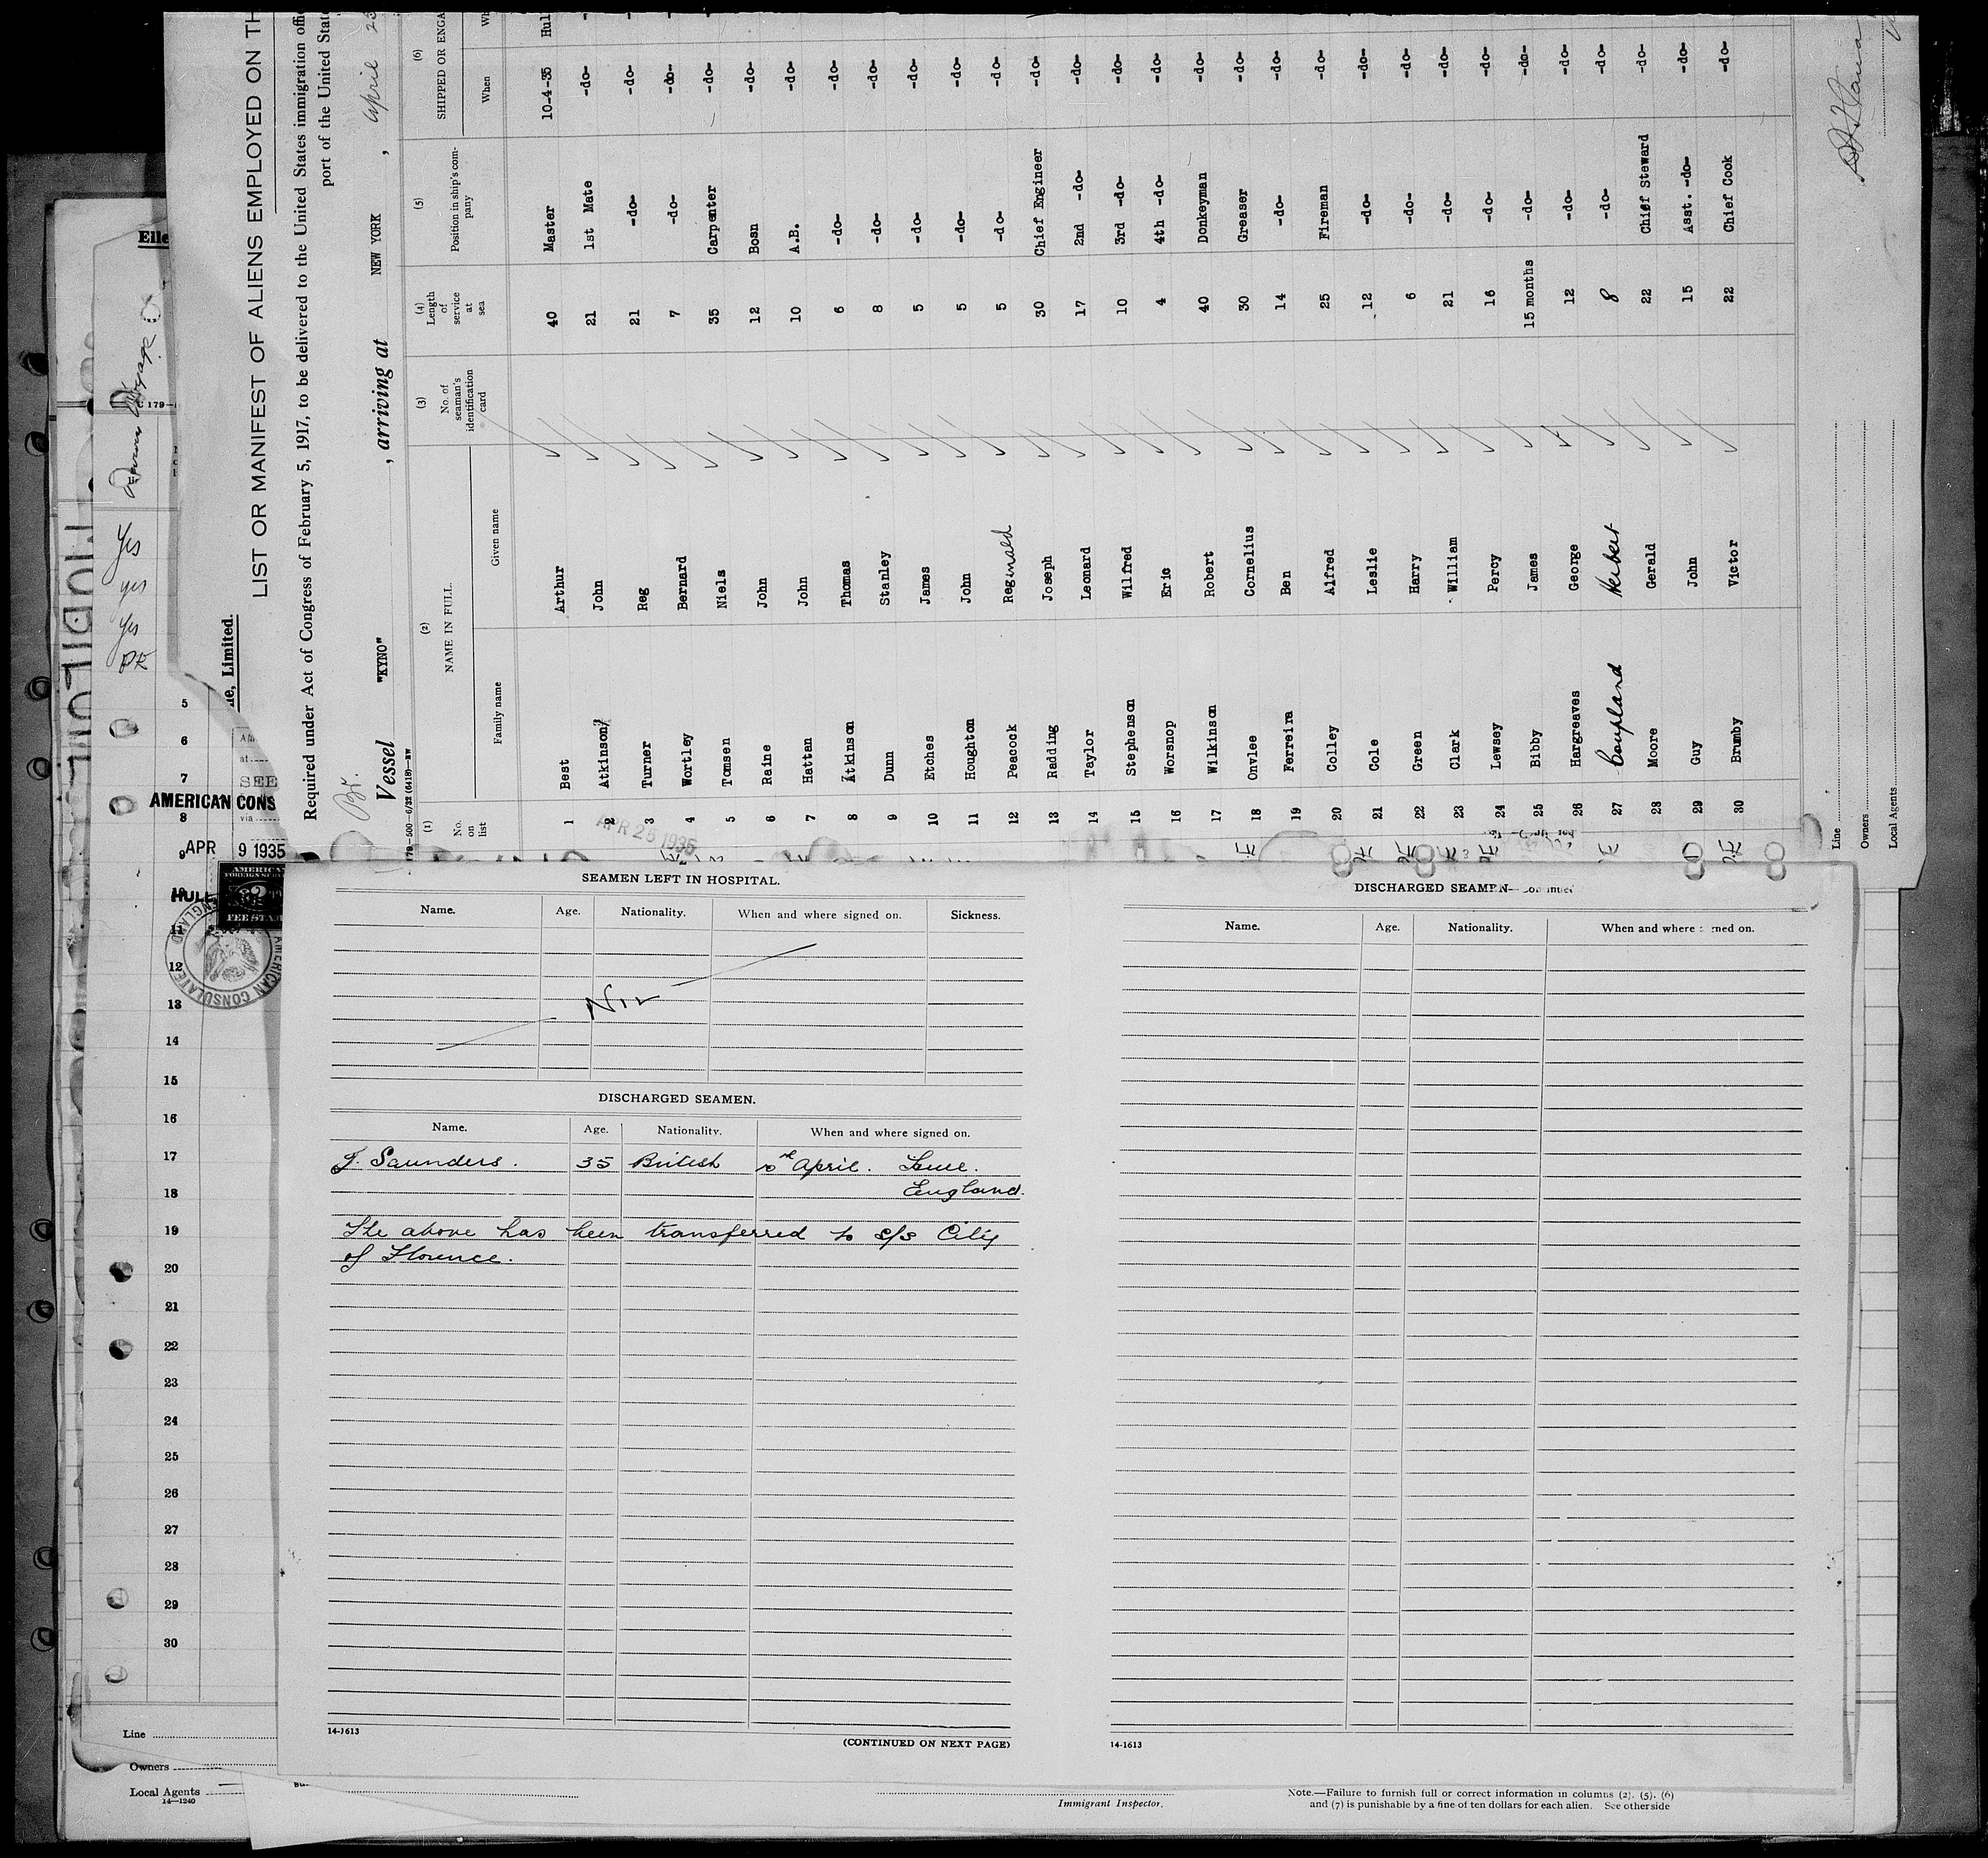 LIST OR MANIFEST OF ALIENS EMPLOYED ON TH
Required under Act of Congress of February 5, 1917, to be delivered to the United States immigration offi
port of the United Stat
Br.
Vessel "KYNO", arriving at NEW YORK, April 25
179—500—6/32 (6418)—HW
(1) No. on list (2) NAME IN FULL Family name Given name (3) No. of seaman's identification card (4) Length of service at sea (5) Position in ship's company (6) SHIPPED OR ENGA When Wh
1 Best Arthur 40 Master 10-4-35 Hul
2 Atkinson John 21 1st Mate -do-
3 Turner Reg 21 -do- -do-
4 Wortley Bernard 7 -do- -do-
5 Tomsen Niels 35 Carpenter -do-
6 Raine John 12 Bosn -do-
7 Hattan John 10 A.B. -do-
8 Atkinson Thomas 6 -do- -do-
9 Dunn Stanley 8 -do- -do-
10 Etches James 5 -do- -do-
11 Houghton John 5 -do- -do-
12 Peacock Reginald 5 -do- -do-
13 Redding Joseph 30 Chief Engineer -do-
14 Taylor Leonard 17 2nd -do- -do-
15 Stephenson Wilfred 10 3rd -do- -do-
16 Worsnop Eric 4 4th -do- -do-
17 Wilkinson Robert 40 Donkeyman -do-
18 Onvlee Cornelius 30 Greaser -do-
19 Ferreira Ben 14 -do- -do-
20 Colley Alfred 25 Fireman -do-
21 Cole Leslie 12 -do- -do-
22 Green Harry 6 -do- -do-
23 Clark William 21 -do- -do-
24 Lewsey Percy 16 -do- -do-
25 Bibby James 15 months -do- -do-
26 Hargreaves George 12 -do- -do-
27 Coupland Herbert 8 -do- -do-
28 Moore Gerald 22 Chief Steward -do-
29 Guy John 15 Asst. -do- -do-
30 Brumby Victor 22 Chief Cook -do-
APR 25 1935
Line
Owners
Local Agents
Elle
ne, Limited.
C 179—
Yes
yes
Yes
SEE
AMERICAN CONS
via
APR 9 1935
HULL
AMERICAN
FOREIGN SERV
FEE STA
AMERICAN CONSULATE
ENGLAND
5
6
7
8
9
10
11
12
13
14
15
16
17
18
19
20
21
22
23
24
25
26
27
28
29
30
SEAMEN LEFT IN HOSPITAL.
Name. Age. Nationality. When and where signed on. Sickness.
Nil
DISCHARGED SEAMEN.
Name. Age. Nationality. When and where signed on.
J. Saunders. 35 British 10th April. Hull.
England.
The above has been transferred to s/s City
of Florence.
14-1613
(CONTINUED ON NEXT PAGE)
DISCHARGED SEAMEN—Continued
Name. Age. Nationality. When and where signed on.
14-1613
Line
Owners
Local Agents
14—1240
Immigrant Inspector.
Note.—Failure to furnish full or correct information in columns (2), (5), (6)
and (7) is punishable by a fine of ten dollars for each alien. See other side